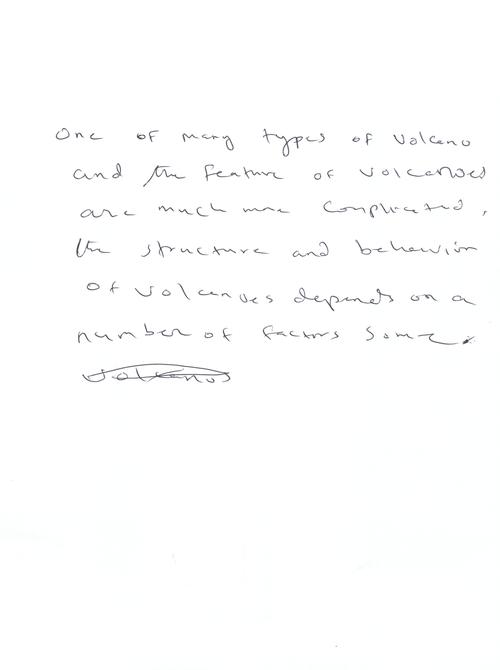 One of many types of volcano
and the feature of volcanoes
are much more complicated,
the structure and behavior
of volcanoes depends on a
number of factors some.
volcanos